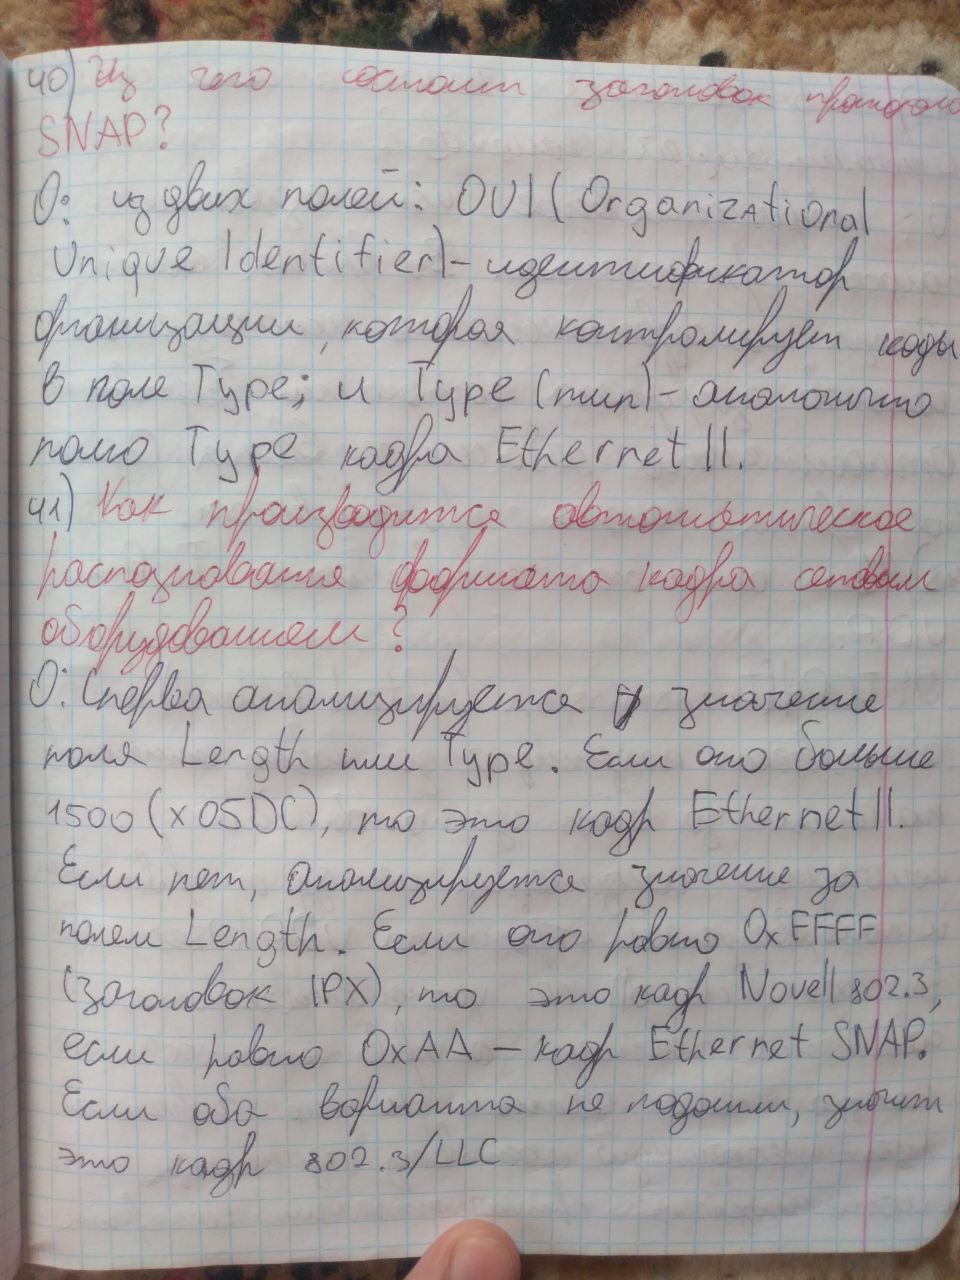 40) Из чего состоит заголовок протокола
SNAP?
О: из двих полей: OUI (Organizational
Unique Identifier) - идентификатор
организации, которая контролирует коды
в поле Type; и Type (тип) - аналогично
полю Type кадра Ethernet II.
41) Как производится автоматическое
распознование формата кадра сетевым
оборудованием?
О: Сперва анализируется значение
поля Length или Type. Если оно больше
1500 (x05DC), то это кадр Ethernet II.
Если нет, анализируется значение за
полем Length. Если оно равно 0xFFFF
(заголовок IPX), то это кадр Novell 802.3,
если равно 0xAA — кадр Ethernet SNAP.
Если оба варианта не подошли, значит
это кадр 802.3/LLC